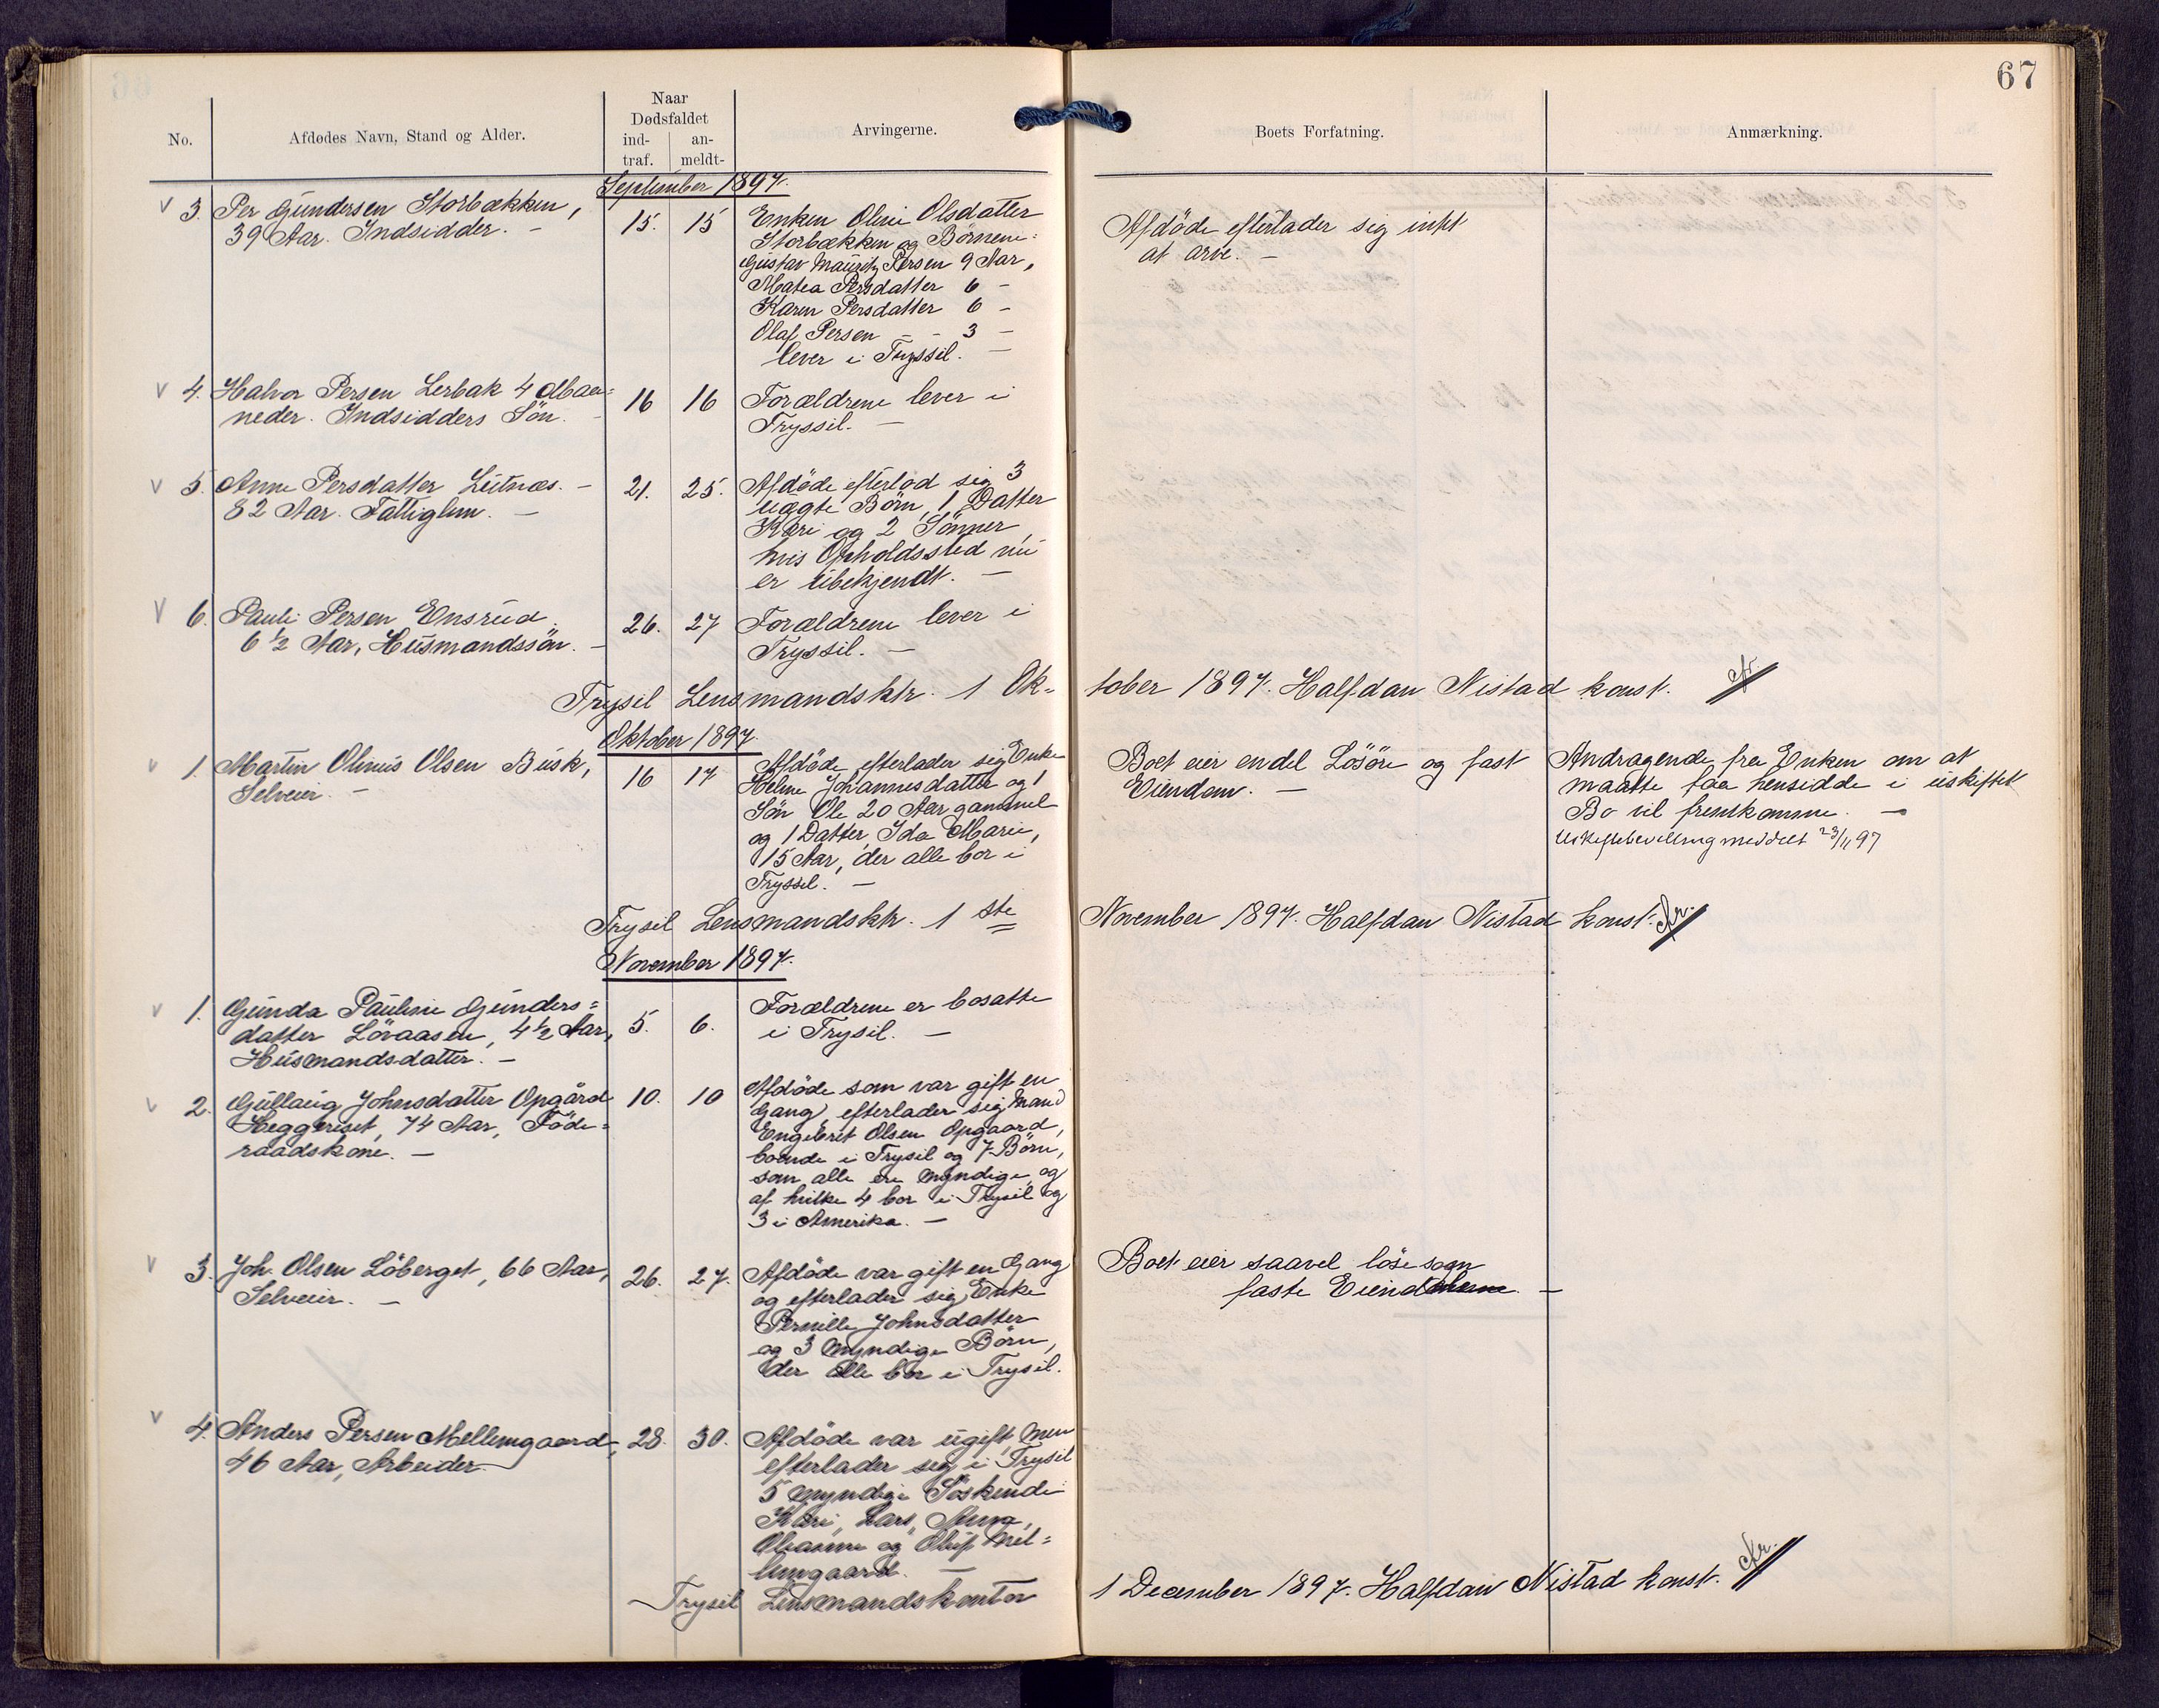 67
No.
Afdødes Navn, Stand og Alder.
Naar
Dødsfaldet
ind-
traf.
an-
meldt-
Arvingerne.
Boets Forfatning.
Anmærkning.
September 1897.
3. Per Gundersen Storbækken,
39 Aar. Indsidder. –
15. 15
Enken Oline Olsdatter
Storbækken og Børnene:
Gustav Mauritz Persen 9 Aar,
Matea Persdatter 6 –
Karen Persdatter 6 –
Olaf Persen – – 3 –
lever i Tryssil. –
Afdöde efterlader sig intet
at arve. –
4. Halvor Persen Lerbak 4 Maa=
neder. Indsidders Sön. –
16 16
Forældrene lever i
Tryssil. –
5. Anne Persdatter Lutnæs. –
82 Aar. Fattiglem. –
21. 25.
Afdöde efterlod sig 3
uægte Börn, 1 Datter
Kari og 2 Sönner,
hvis Opholdssted nu
er ubekjendt. –
6. Pauli Persen Ensrud.
6 1/2 Aar, Husmandssön. –
26. 27
Forældrene lever i
Tryssil. –
Trysil Lensmandsktr. 1 Ok-
tober 1897. Halfdan Nistad konst.
Oktober 1897.
1. Martin Olinus Olsen Busk,
Selveier. –
16 17
Afdöde efterlader sig Enke
Helene Johannesdatter og 1
Sön Ole 20 Aar gammel
og 1 Datter, Ida Marie,
15 Aar, der alle bor i
Tryssil. –
Boet eier endel Lösöre og fast
Eiendom. –
Andragende fra Enken om at
maatte faa hensidde i uskiftet
Bo vil fremkomme. –
Uskiftebevilling meddelt 23/11 97
Trysil Lensmandsktr. 1 ste
November 1897. Halfdan Nistad konst.
November 1897.
1. Gunda Pauline Gunders=
datter Lövaasen, 4 1/2 Aar,
Husmandsdatter. –
5. 6.
Forældrene er bosatte
i Trysil. –
2. Gullaug Johnsdatter Opgård
Heggeriset, 74 Aar, Föde=
raadskone. –
10. 10
Afdöde som var gift en
Gang, efterlader sig Mand
Engebret Olsen Opgaard,
boende i Trysil og 7 Börn,
som alle ere myndige og
af hvilke 4 bor i Trysil og
3 i Amerika. –
3. Joh. Olsen Löberget, 66 Aar,
Selveier. –
26. 27.
Afdöde var gift en Gang
og efterlader sig Enke
Pernille Johnsdatter
og 3 myndige Börn,
der alle bor i Trysil.
Boet eier saavel löse som
faste Eiendomme. –
4. Anders Persen Mellemgaard,
46 Aar, Arbeider
28. 30.
Afdöde var ugift, men
efterlader sig i Trysil
5 myndige Söskende
Kari, Lars,
Oleanne og Oluf Mel=
lemgaard. –
Trysil Lensmandskontor
1 December 1897. Halfdan Nistad konst.